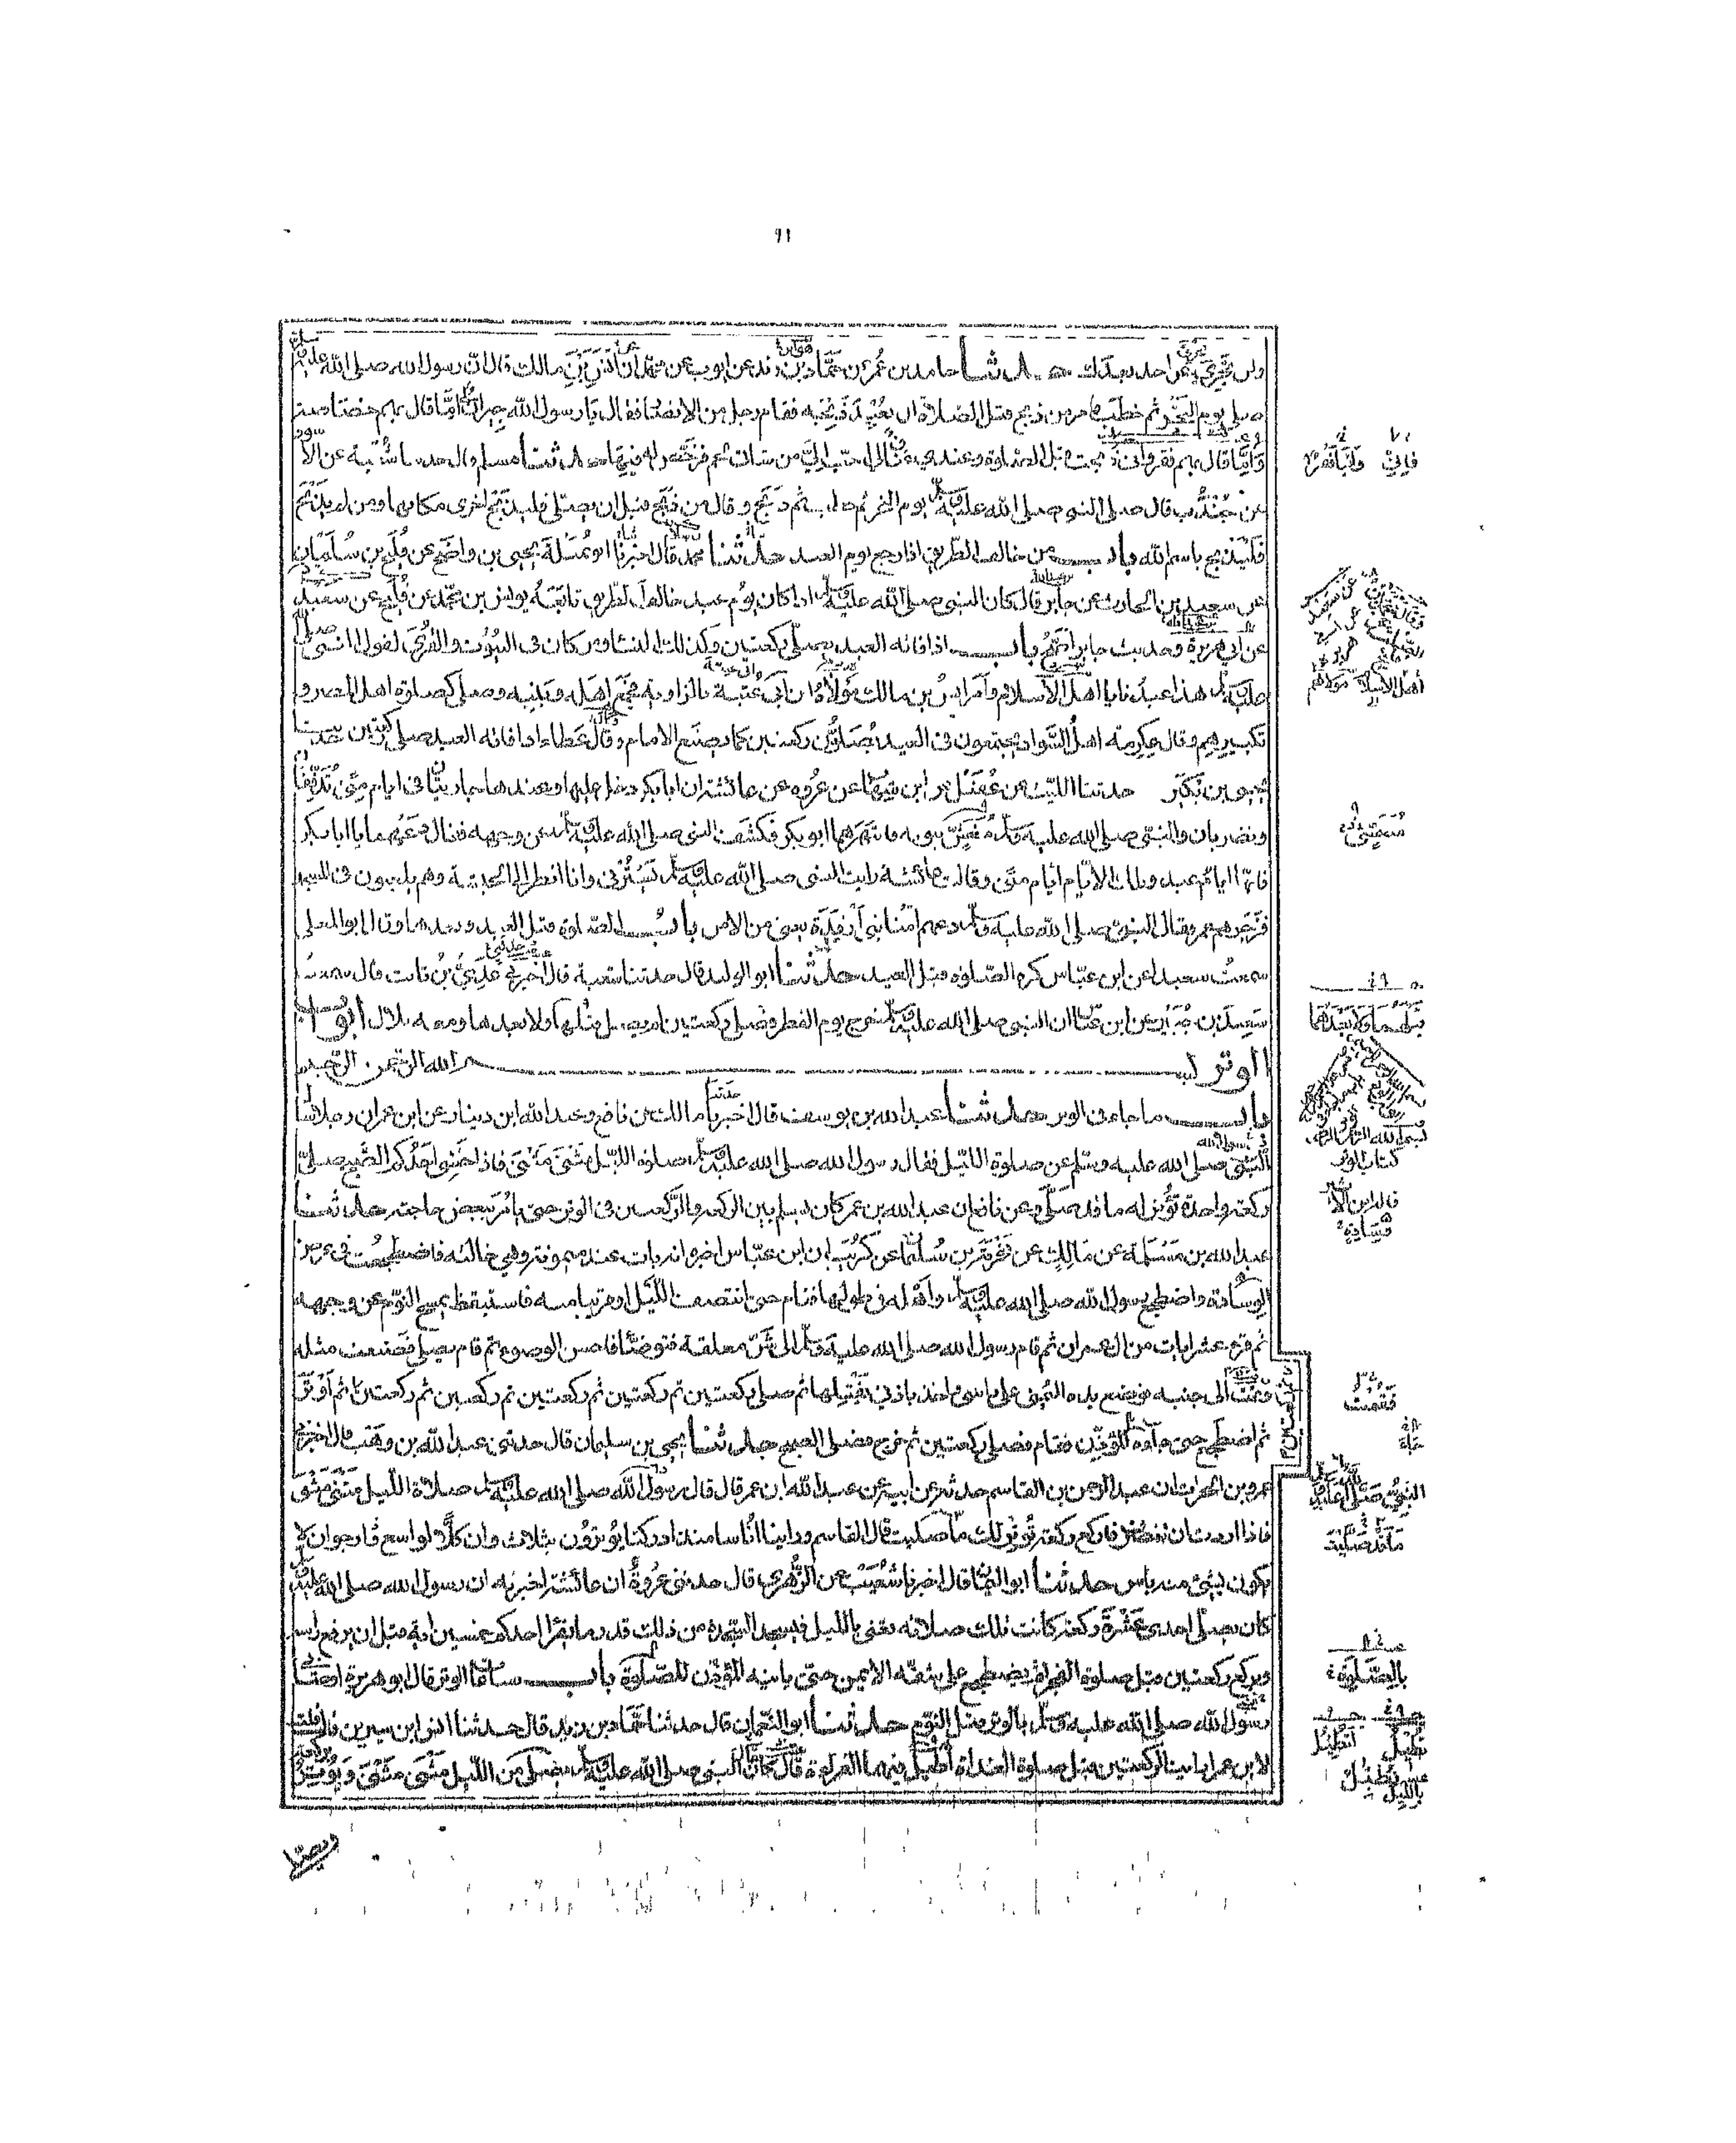 ٩١
ولن تجزي عن احد بعدك حدثنا حامد بن عمر عن حماد بن زيد عن ايوب عن محمد ان انس بن مالك قال ان رسول الله صلى الله عليه
صلى يوم النحر ثم خطب فامر من ذبح قبل الصلاة ان يعيد ذبحه فقام رجل من الانصار فقال يا رسول الله جيران لي اما قال بهم خصاصة
واما قال بهم فقر واني ذبحت قبل الصلوة وعندي عناق لي احب الي من شاتي لحم فرخص له فيها حدثنا مسلم قال حدثنا شعبة عن الاسود
عن جندب قال صلى النبي صلى الله عليه وسلم يوم النحر ثم خطب ثم ذبح وقال من ذبح قبل ان يصلي فليذبح اخرى مكانها ومن لم يذبح
فليذبح باسم الله باب من خالف الطريق اذا رجع يوم العيد حدثنا محمد قال اخبرنا ابو تميلة يحيى بن واضح عن فليح بن سليمان
عن سعيد بن الحارث عن جابر قال كان النبي صلى الله عليه وسلم اذا كان يوم عيد خالف الطريق تابعه يونس بن محمد عن فليح عن سعيد
عن ابي هريرة وحديث جابر اصح باب اذا فاته العيد يصلي ركعتين وكذلك النساء ومن كان في البيوت والقرى لقول النبي صلى
عليه وسلم هذا عيدنا يا اهل الاسلام وامر انس بن مالك مولاه ابن ابي عتبة بالزاوية فجمع اهله وبنيه وصلى كصلوة اهل المصر و
تكبيرهم وقال عكرمة اهل السواد يجتمعون في العيد يصلون ركعتين كما يصنع الامام وقال عطاء اذا فاته العيد صلى ركعتين حدثنا
يحيى بن بكير حدثنا الليث عن عقيل عن ابن شهاب عن عروة عن عائشة ان ابا بكر دخل عليها وعندها جاريتان في ايام منى تدففان
وتضربان والنبي صلى الله عليه وسلم متغش بثوبه فانتهرهما ابو بكر فكشف النبي صلى الله عليه وسلم عن وجهه فقال دعهما يا ابا بكر
فانها ايام عيد وتلك الايام ايام منى وقالت عائشة رايت النبي صلى الله عليه وسلم يسترني وانا انظر الى الحبشة وهم يلعبون في المسجد
فزجرهم عمر فقال النبي صلى الله عليه وسلم دعهم امنا بني ارفدة يعني من الامن باب الصلوة قبل العيد وبعدها وقال ابو المعلى
سمعت سعيدا عن ابن عباس كره الصلوة قبل العيد حدثنا ابو الوليد قال حدثنا شعبة قال اخبرني عدي بن ثابت قال سمعت
سعيد بن جبير عن ابن عباس ان النبي صلى الله عليه وسلم خرج يوم الفطر فصلى ركعتين لم يصل قبلها ولا بعدها ومعه بلال ابواب
الوتر بسم الله الرحمن الرحيم
باب ما جاء في الوتر حدثنا عبد الله بن يوسف قال اخبرنا مالك عن نافع وعبد الله ابن دينار عن ابن عمر ان رجلا سأل
النبي صلى الله عليه وسلم عن صلوة الليل فقال رسول الله صلى الله عليه وسلم صلوة الليل مثنى مثنى فاذا خشي احدكم الصبح صلى
ركعة واحدة توتر له ما قد صلى وعن نافع ان عبد الله بن عمر كان يسلم بين الركعة والركعتين في الوتر حتى يامر ببعض حاجته حدثنا
عبد الله بن مسلمة عن مالك عن مخرمة بن سليمان عن كريب ان ابن عباس اخبره انه بات عند ميمونة وهي خالته فاضطجعت في عرض
الوسادة واضطجع رسول الله صلى الله عليه وسلم واهله في طولها فنام حتى انتصف الليل او قريبا منه فاستيقظ يمسح النوم عن وجهه
ثم قرء عشر ايات من ال عمران ثم قام رسول الله صلى الله عليه وسلم الى شن معلقة فتوضأ فاحسن الوضوء ثم قام يصلي فصنعت مثله
وقمت الى جنبه فوضع يده اليمنى على راسي واخذ باذني يفتلها ثم صلى ركعتين ثم ركعتين ثم ركعتين ثم ركعتين ثم ركعتين ثم اوتر
ثم اضطجع حتى جاءه المؤذن فقام فصلى ركعتين ثم خرج فصلى الصبح حدثنا يحيى بن سليمان قال حدثني عبد الله بن وهب قال اخبرني
عمرو بن الحرث ان عبد الرحمن بن القاسم حدثه عن ابيه عن عبد الله ابن عمر قال قال رسول الله صلى الله عليه وسلم صلاة الليل مثنى مثنى
فاذا اردت ان تنصرف فاركع ركعة توتر لك ما صليت قال القاسم وراينا اناسا منذ ادركنا يوترون بثلاث وان كلا لواسع فارجو ان لا
يكون بشئ منه باس حدثنا ابو اليمان قال اخبرنا شعيب عن الزهري قال حدثني عروة ان عائشة اخبرته ان رسول الله صلى الله عليه وسلم
كان يصلي احدى عشرة ركعة كانت تلك صلاته تعني بالليل فيسجد السجدة من ذلك قدر ما يقرا احدكم خمسين اية قبل ان يرفع راسه
ويركع ركعتين قبل صلوة الفجر ثم يضطجع على شقه الايمن حتى ياتيه المؤذن للصلوة باب ساعات الوتر قال ابو هريرة اوصاني
رسول الله صلى الله عليه وسلم بالوتر قبل النوم حدثنا ابو النعمان قال حدثنا حماد بن زيد قال حدثنا انس ابن سيرين قال قلت
لابن عمر ارايت الركعتين قبل صلوة الغداة اطيل فيهما القراءة قال كان النبي صلى الله عليه وسلم يصلي من الليل مثنى مثنى ويوتر
فاني
اهل الاسلام مولاهم
قبلهما ولا بعدهما
بسم الله الرحمن الرحيم
كتاب الوتر
وسادة
فقمت
جاءه
النبي صلى الله عليه
ما قد صليت
بالصلوة
نطيل
اتطيل
تطيل
بالليل